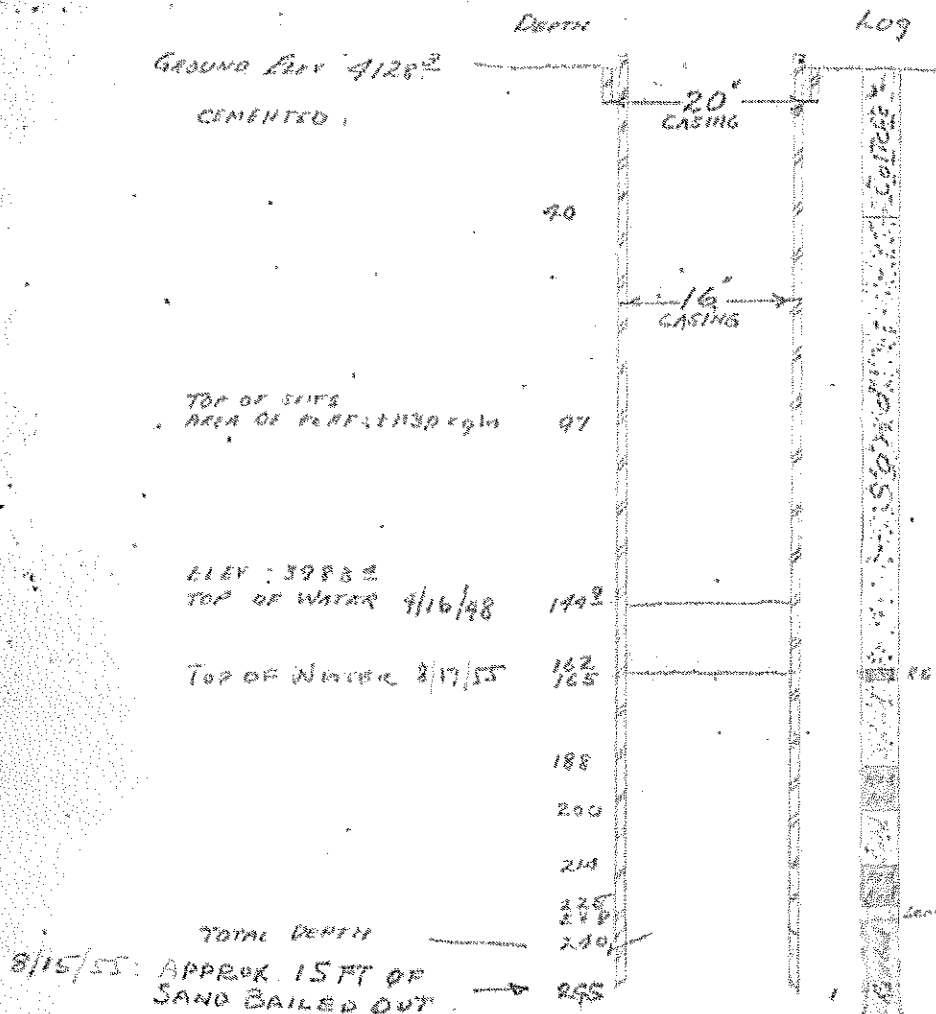 DEPTH
LOG
GROUND ELEV 4128
CEMENTED
20"
CASING
40
16"
CASING
TOP OF SLITS
AREA OF PERF:
97
ELEV : 3983
TOP OF WATER 4/16/48
144
TOP OF WATER 8/17/55
162
165
188
200
214
225
TOTAL DEPTH
240
8/15/55: APPROX 15 FT OF
SAND BAILED OUT
255
CALICHE
SAND